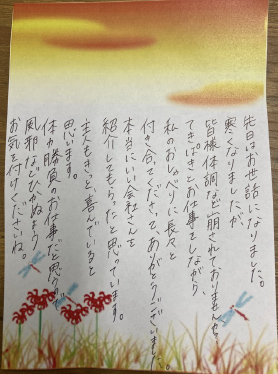 先日はお世話になりました。
寒くなりましたが、
皆様体調など崩されておりませんか。
てきぱきとお仕事をしながら、
私のおしゃべりに長々と
付き合てくださって、ありがとうございました。
本当にいい会社さんを
紹介してもらったと思っています。
主人もきっと、喜んでいると
思います。
体力勝負のお仕事だと思うので
風邪などひかぬよう
お気を付けくださいね。